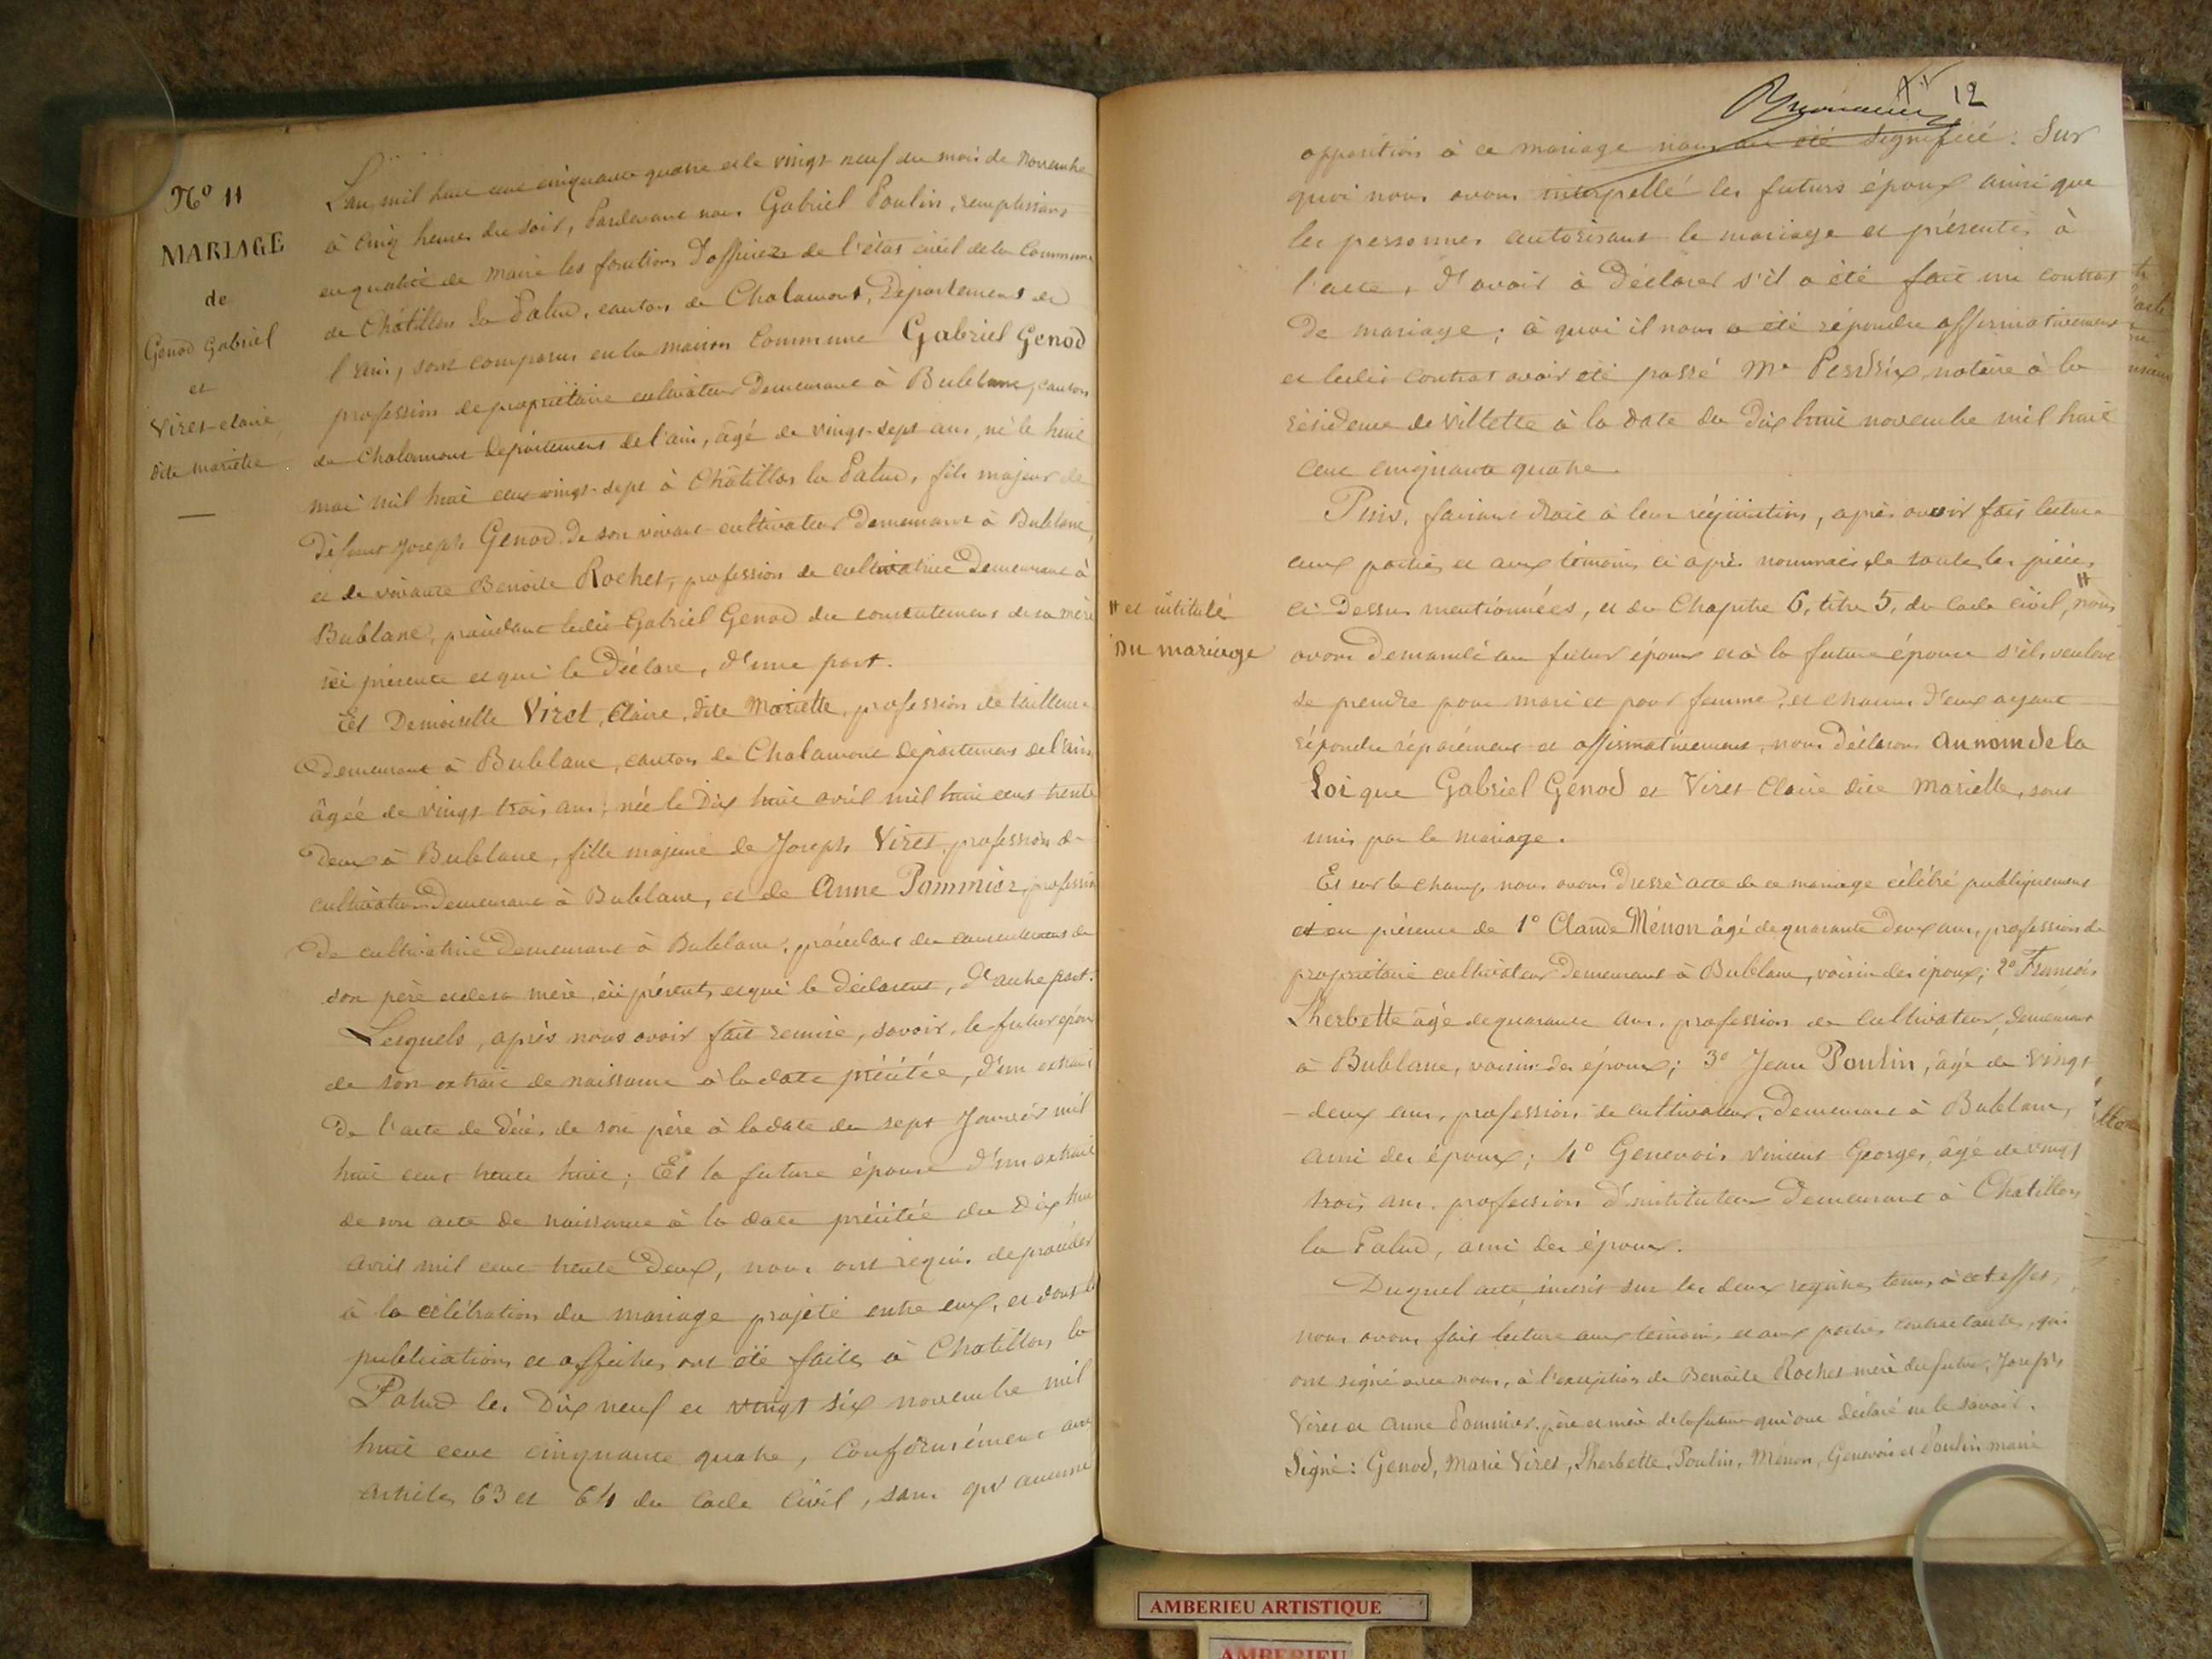 N° 11
MARIAGE
de
Genod Gabriel
et
Viret claire
dite mariette
L'an mil huit cent cinquante quatre et le vingt neuf du mois de novembre
à cinq heures du soir, Pardevant nous Gabriel Poulin, remplissant
en qualité de maire les fonctions d'officier de l'état civil de la Commune
de Châtillon La Palud, canton de Chalamont, Département de
l'ain, sont comparus en la maison Commune Gabriel Genod
profession de propriétaire cultivateur Demeurant à Bublane, canton
de Chalamont Département de l'ain, âgé de vingt-sept ans, né le huit
mai mil huit cent vingt-sept à Châtillon la Palud, fils majeur de
Défunt Joseph Genod de son vivant cultivateur Demeurant à Bublane,
et de vivante Benoite Rochet, profession de cultivatrice Demeurant à
Bublane, procédant ledit Gabriel Genod du consentement de sa mère
ici présente et qui le Déclare, d'une part.
Et Demoiselle Viret, Claire, dite Mariette, profession de tailleuse
Demeurant à Bublane, canton de Chalamont département de l'ain
âgée de vingt-trois ans; née le Dix huit avril mil huit cent trente
Deux à Bublane, fille majeure de Joseph Viret, profession de
cultivateur Demeurant à Bublane, et de Anne Pommier, profession
de cultivatrice Demeurant à Bublane, procédant du consentement de
son père et de sa mère, ici présents et qui le déclarent, d'autre part.
Lesquels, après nous avoir fait remise, savoir, le futur époux
de son extrait de naissance à la date précitée, d'un extrait
De l'acte de décès de son père à la date du sept Janvier mil
huit cent trente huit; Et la future épouse d'un extrait
de son acte de naissance à la date précitée du dix huit
avril mil cent trente Deux, nous ont requis de procéder
à la célébration du mariage projeté entre eux, et dont les
publications et affiches ont été faites à Chatillon la
Palud les Dix neuf et vingt six novembre mil
huit cent cinquante quatre, conformément aux
articles 63 et 64 du Code Civil, sans qu'aucune
12
opposition à ce mariage nous ait été signifiée. Sur
quoi nous avons interpellé les futurs époux ainsi que
les personnes autorisant le mariage et présentes à
l'acte, d'avoir à Déclarer s'il a été fait un contrat
De mariage; à quoi il nous a été répondu affirmativement
et ledit contrat avoir été passé Me Perdrix notaire à la
résidence de Villette à la date du Dix huit novembre mil huit
cent cinquante quatre.
Puis, faisant droit à leur réquisition, après avoir fait lecture
aux parties et aux témoins ci après nommés, de toutes les pièces
ci-Dessus mentionnées, et du Chapitre 6, titre 5, du Code civil, # nous
# et intitulé
Du mariage
avons Demandé au futur époux et à la future épouse s'ils veulent
se prendre pour mari et pour femme, et chacun d'eux ayant
répondu séparément et affirmativement, nous Déclarons au nom de la
Loi que Gabriel Genod et Viret Claire dite Mariette, sont
unis par le mariage.
Et sur le champ, nous avons dressé acte de ce mariage célébré publiquement
et en présence de 1° Claude Ménon âgé de quarante deux ans, profession de
propriétaire cultivateur Demeurant à Bublane, voisin des époux; 2° François
Lherbette âgé de quarante ans, profession de cultivateur, demeurant
à Bublane, voisin des époux; 3° Jean Poulin, âgé de vingt
-deux ans, profession de cultivateur, Demeurant à Bublane,
ami des époux; 4° Genevois Vincent Georges, âgé de vingt
trois ans, profession d'instituteur Demeurant à Chatillon
la Palud, ami des époux.
Duquel acte, inscrit sur les deux registres tenus à cet effet,
nous avons fait lecture aux témoins et aux parties contractantes, qui
ont signé avec nous, à l'exception de Benoite Rochet mère du futur, Joseph
Viret et Anne Pommier, père et mère de la future qui ont déclaré ne le savoir.
Signé: Genod, Marie Viret, Lherbette, Poulin, Ménon, Genevois et Poulin maire
AMBERIEU ARTISTIQUE
AMBERIEU